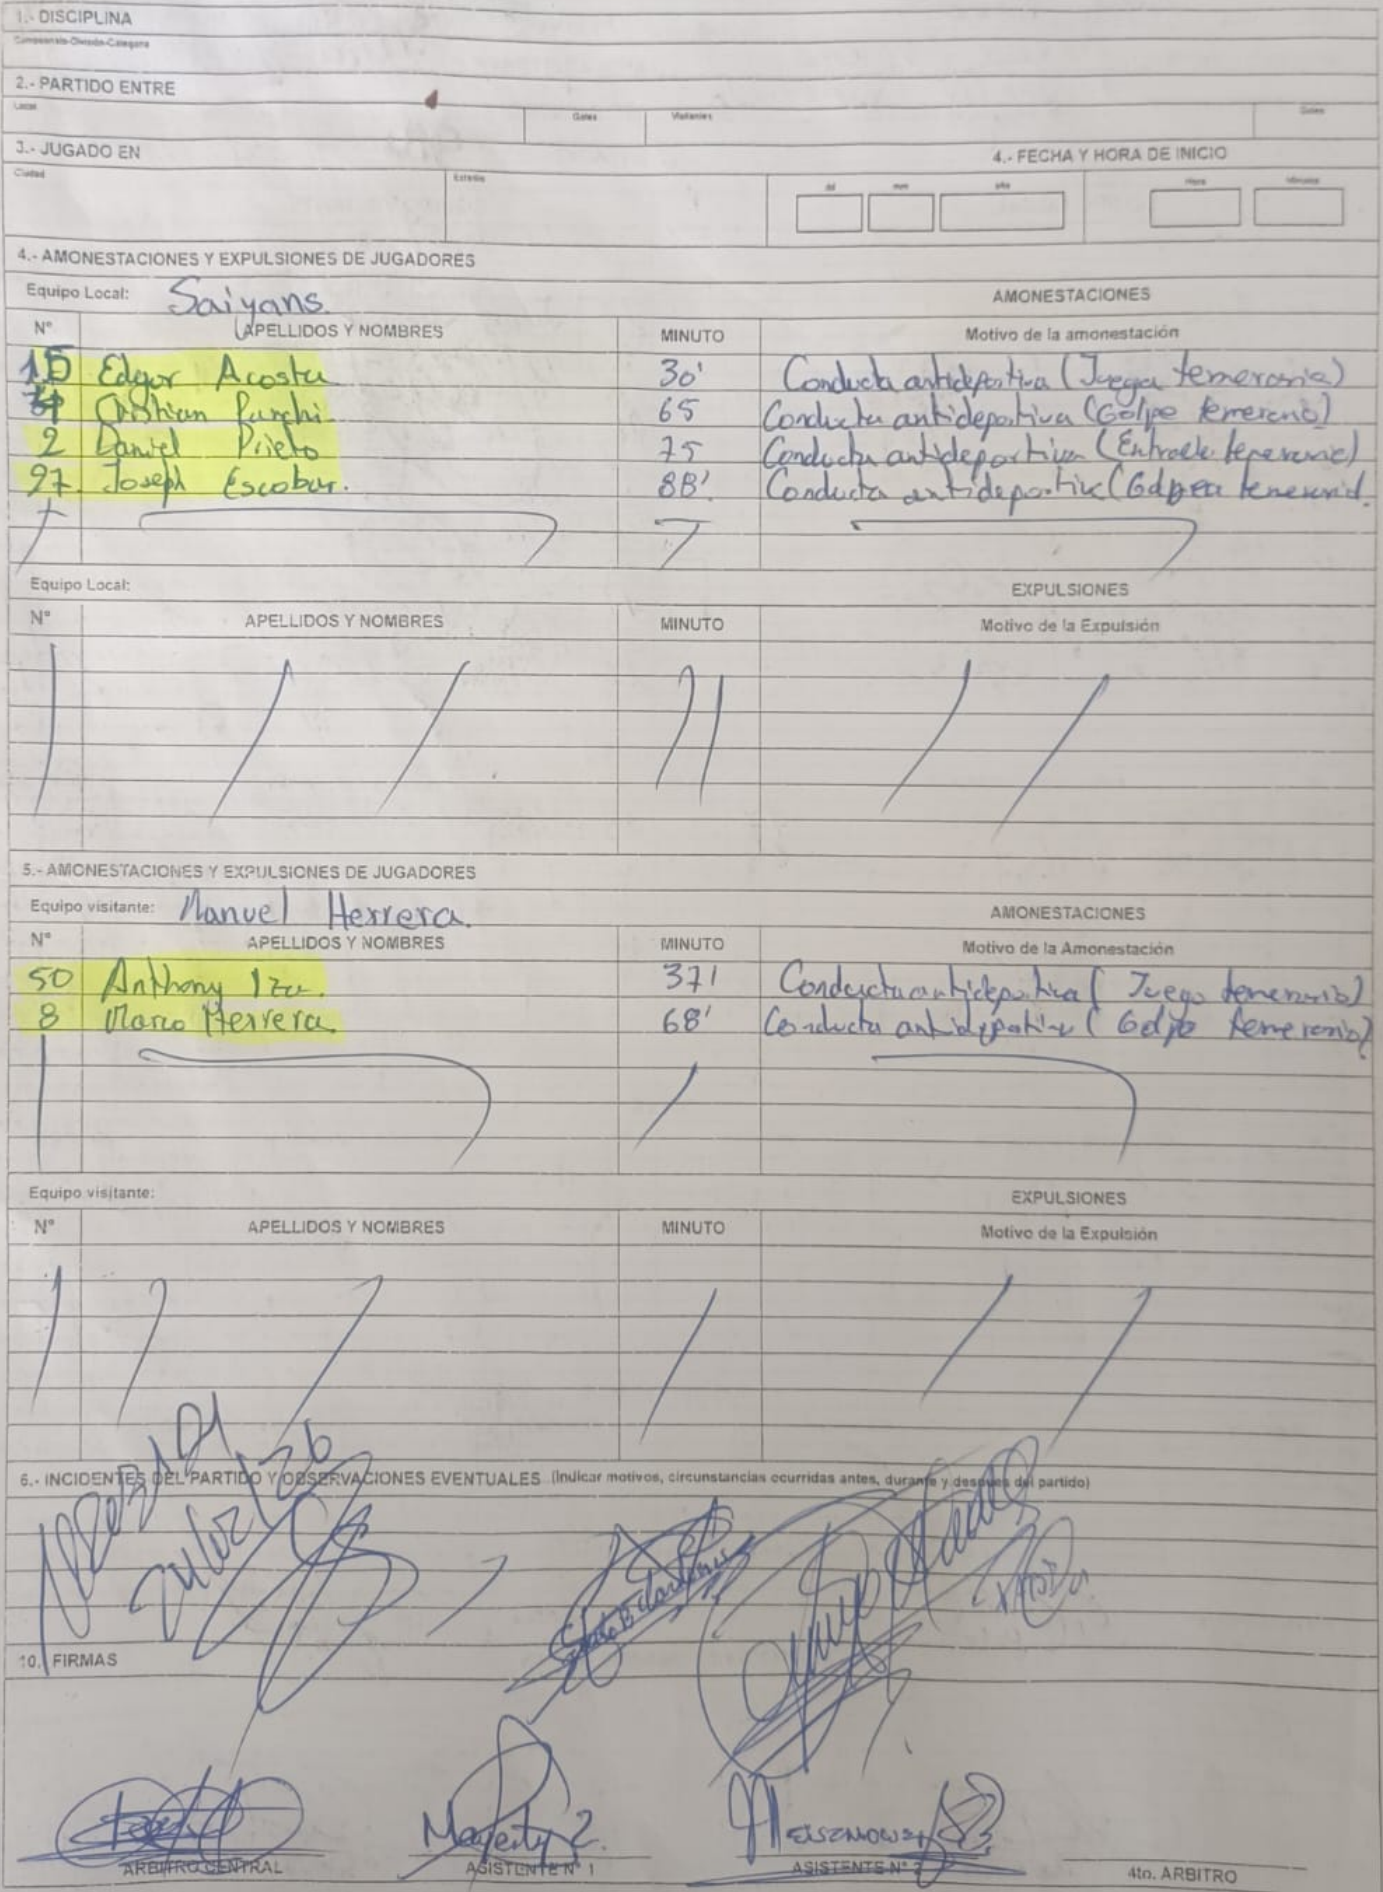 1.- DISCIPLINA
Campeonato-División-Categoría
2.- PARTIDO ENTRE
Local Goles Visitantes Goles
3.- JUGADO EN 4.- FECHA Y HORA DE INICIO
Ciudad Estadio dd mm año Hora Minutos
4.- AMONESTACIONES Y EXPULSIONES DE JUGADORES
Equipo Local: Saiyans. AMONESTACIONES
N° APELLIDOS Y NOMBRES MINUTO Motivo de la amonestación
15 Edgar Acosta 30' Conducta antideportiva (Juega temeraria)
Cristian 65 Conducta antideportiva (Golpe temerario)
2 Daniel Prieto 75 Conducta antideportiva (Entrada temeraria)
97 Joseph Escobar. 88' Conducta antideportiva
Equipo Local: EXPULSIONES
N° APELLIDOS Y NOMBRES MINUTO Motivo de la Expulsión
5.- AMONESTACIONES Y EXPULSIONES DE JUGADORES
Equipo visitante: Manuel Herrera. AMONESTACIONES
N° APELLIDOS Y NOMBRES MINUTO Motivo de la Amonestación
50 Anthony 37' Conducta antideportiva (Juego temerario)
8 Marco Herrera. 68' Conducta antideportiva (Golpe temerario)
Equipo visitante: EXPULSIONES
N° APELLIDOS Y NOMBRES MINUTO Motivo de la Expulsión
6.- INCIDENTES DEL PARTIDO Y OBSERVACIONES EVENTUALES (Indicar motivos, circunstancias ocurridas antes, durante y después del partido)
10. FIRMAS
ARBITRO CENTRAL ASISTENTE N° 1 ASISTENTE N° 2 4to. ARBITRO